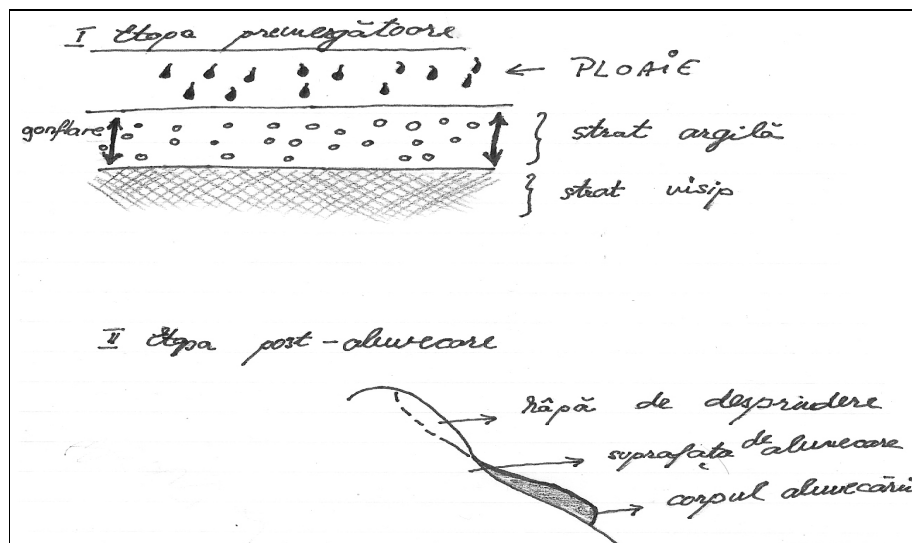 I Etapa premergătoare
← PLOAIE
gonflare
} strat argilă
} strat nisip
II Etapa post-alunecare
râpă de desprindere
suprafața de alunecare
corpul alunecării